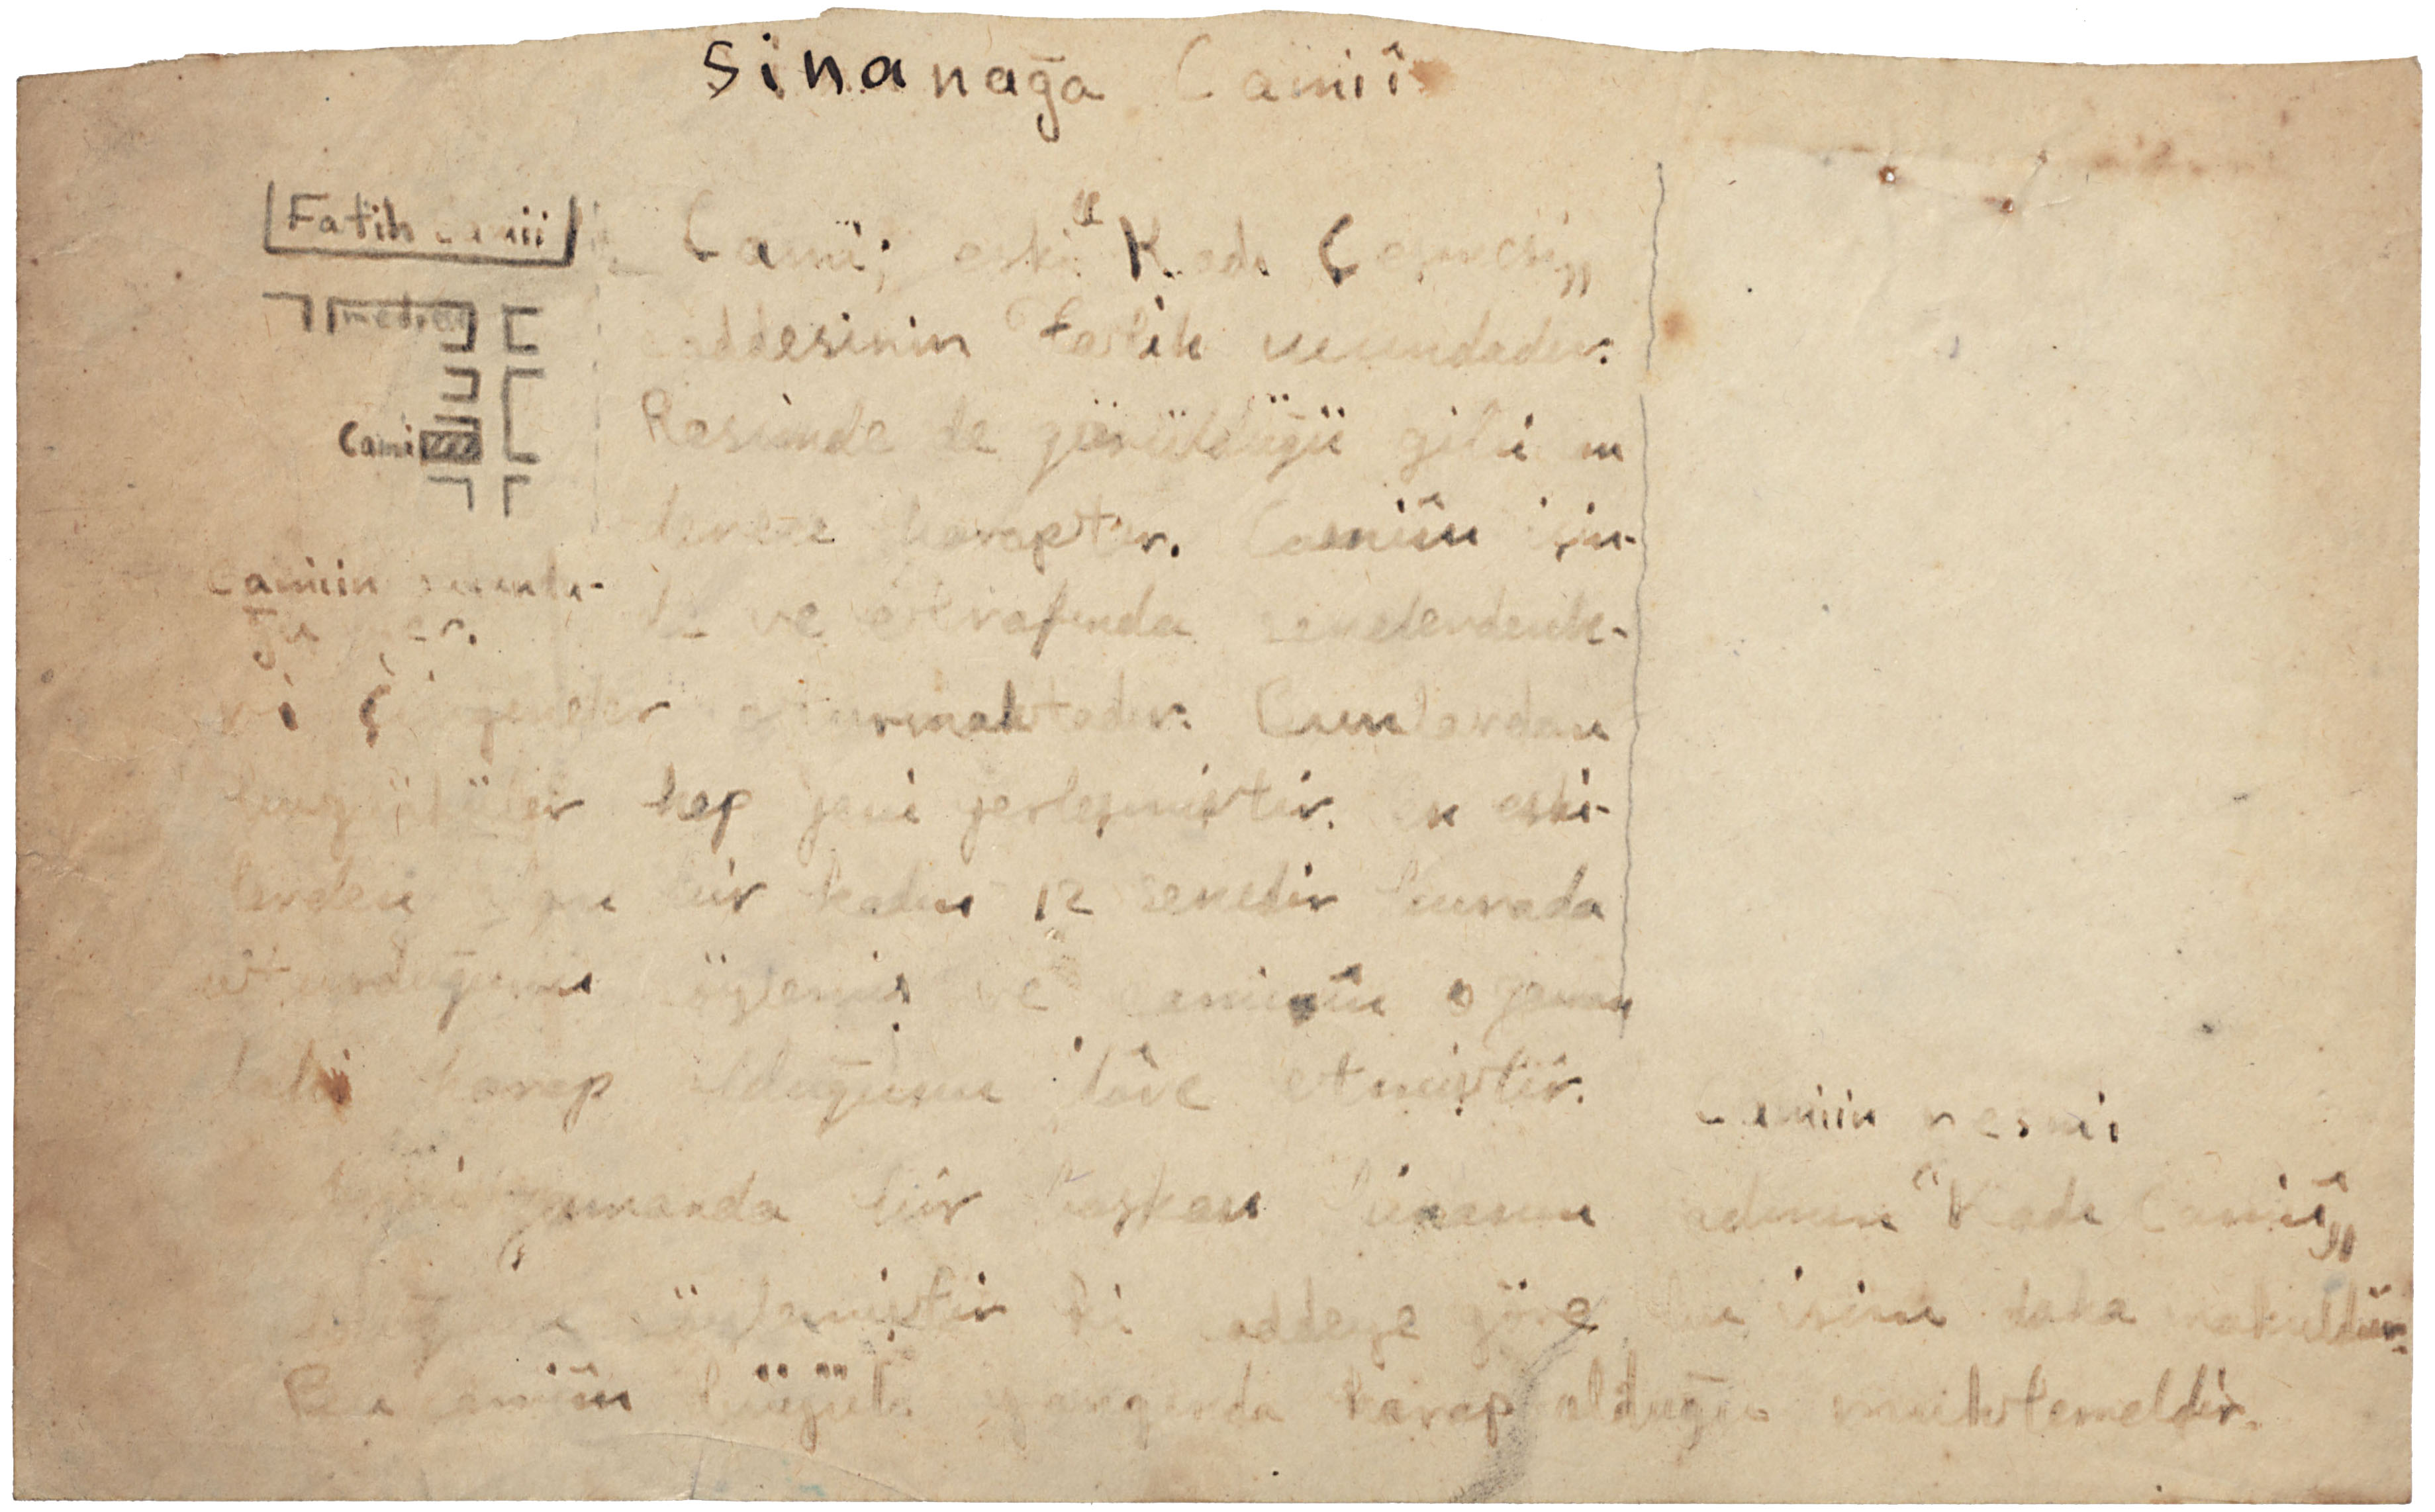 Sinanağa Camii
Fatih Camii
medrese
Cami
Camiin
yer.
Camii; eski "Kadı Çeşmesi„
caddesinin Fatih ucundadır.
Resimde de görüldüğü gibi son
derece haraptır. Camiin için-
de ve etrafında senelerdenbe-
ri Çingeneler oturmaktadır. Bunlardan
bugünküler hep yeni yerleşmiştir. En eski-
lerden olan bir kadın 12 senedir burada
oturduğunu söylemiş ve camiin o zaman
dahi harap olduğunu ilâve etmiştir.
Camiin resmi
Aynı zamanda bir başkası binanın adının "Kadı Camii„
olduğunu söylemiştir ki caddeye göre bu isim daha makuldür.
Bu camiin büyük yangında harap olduğu muhtemeldir.